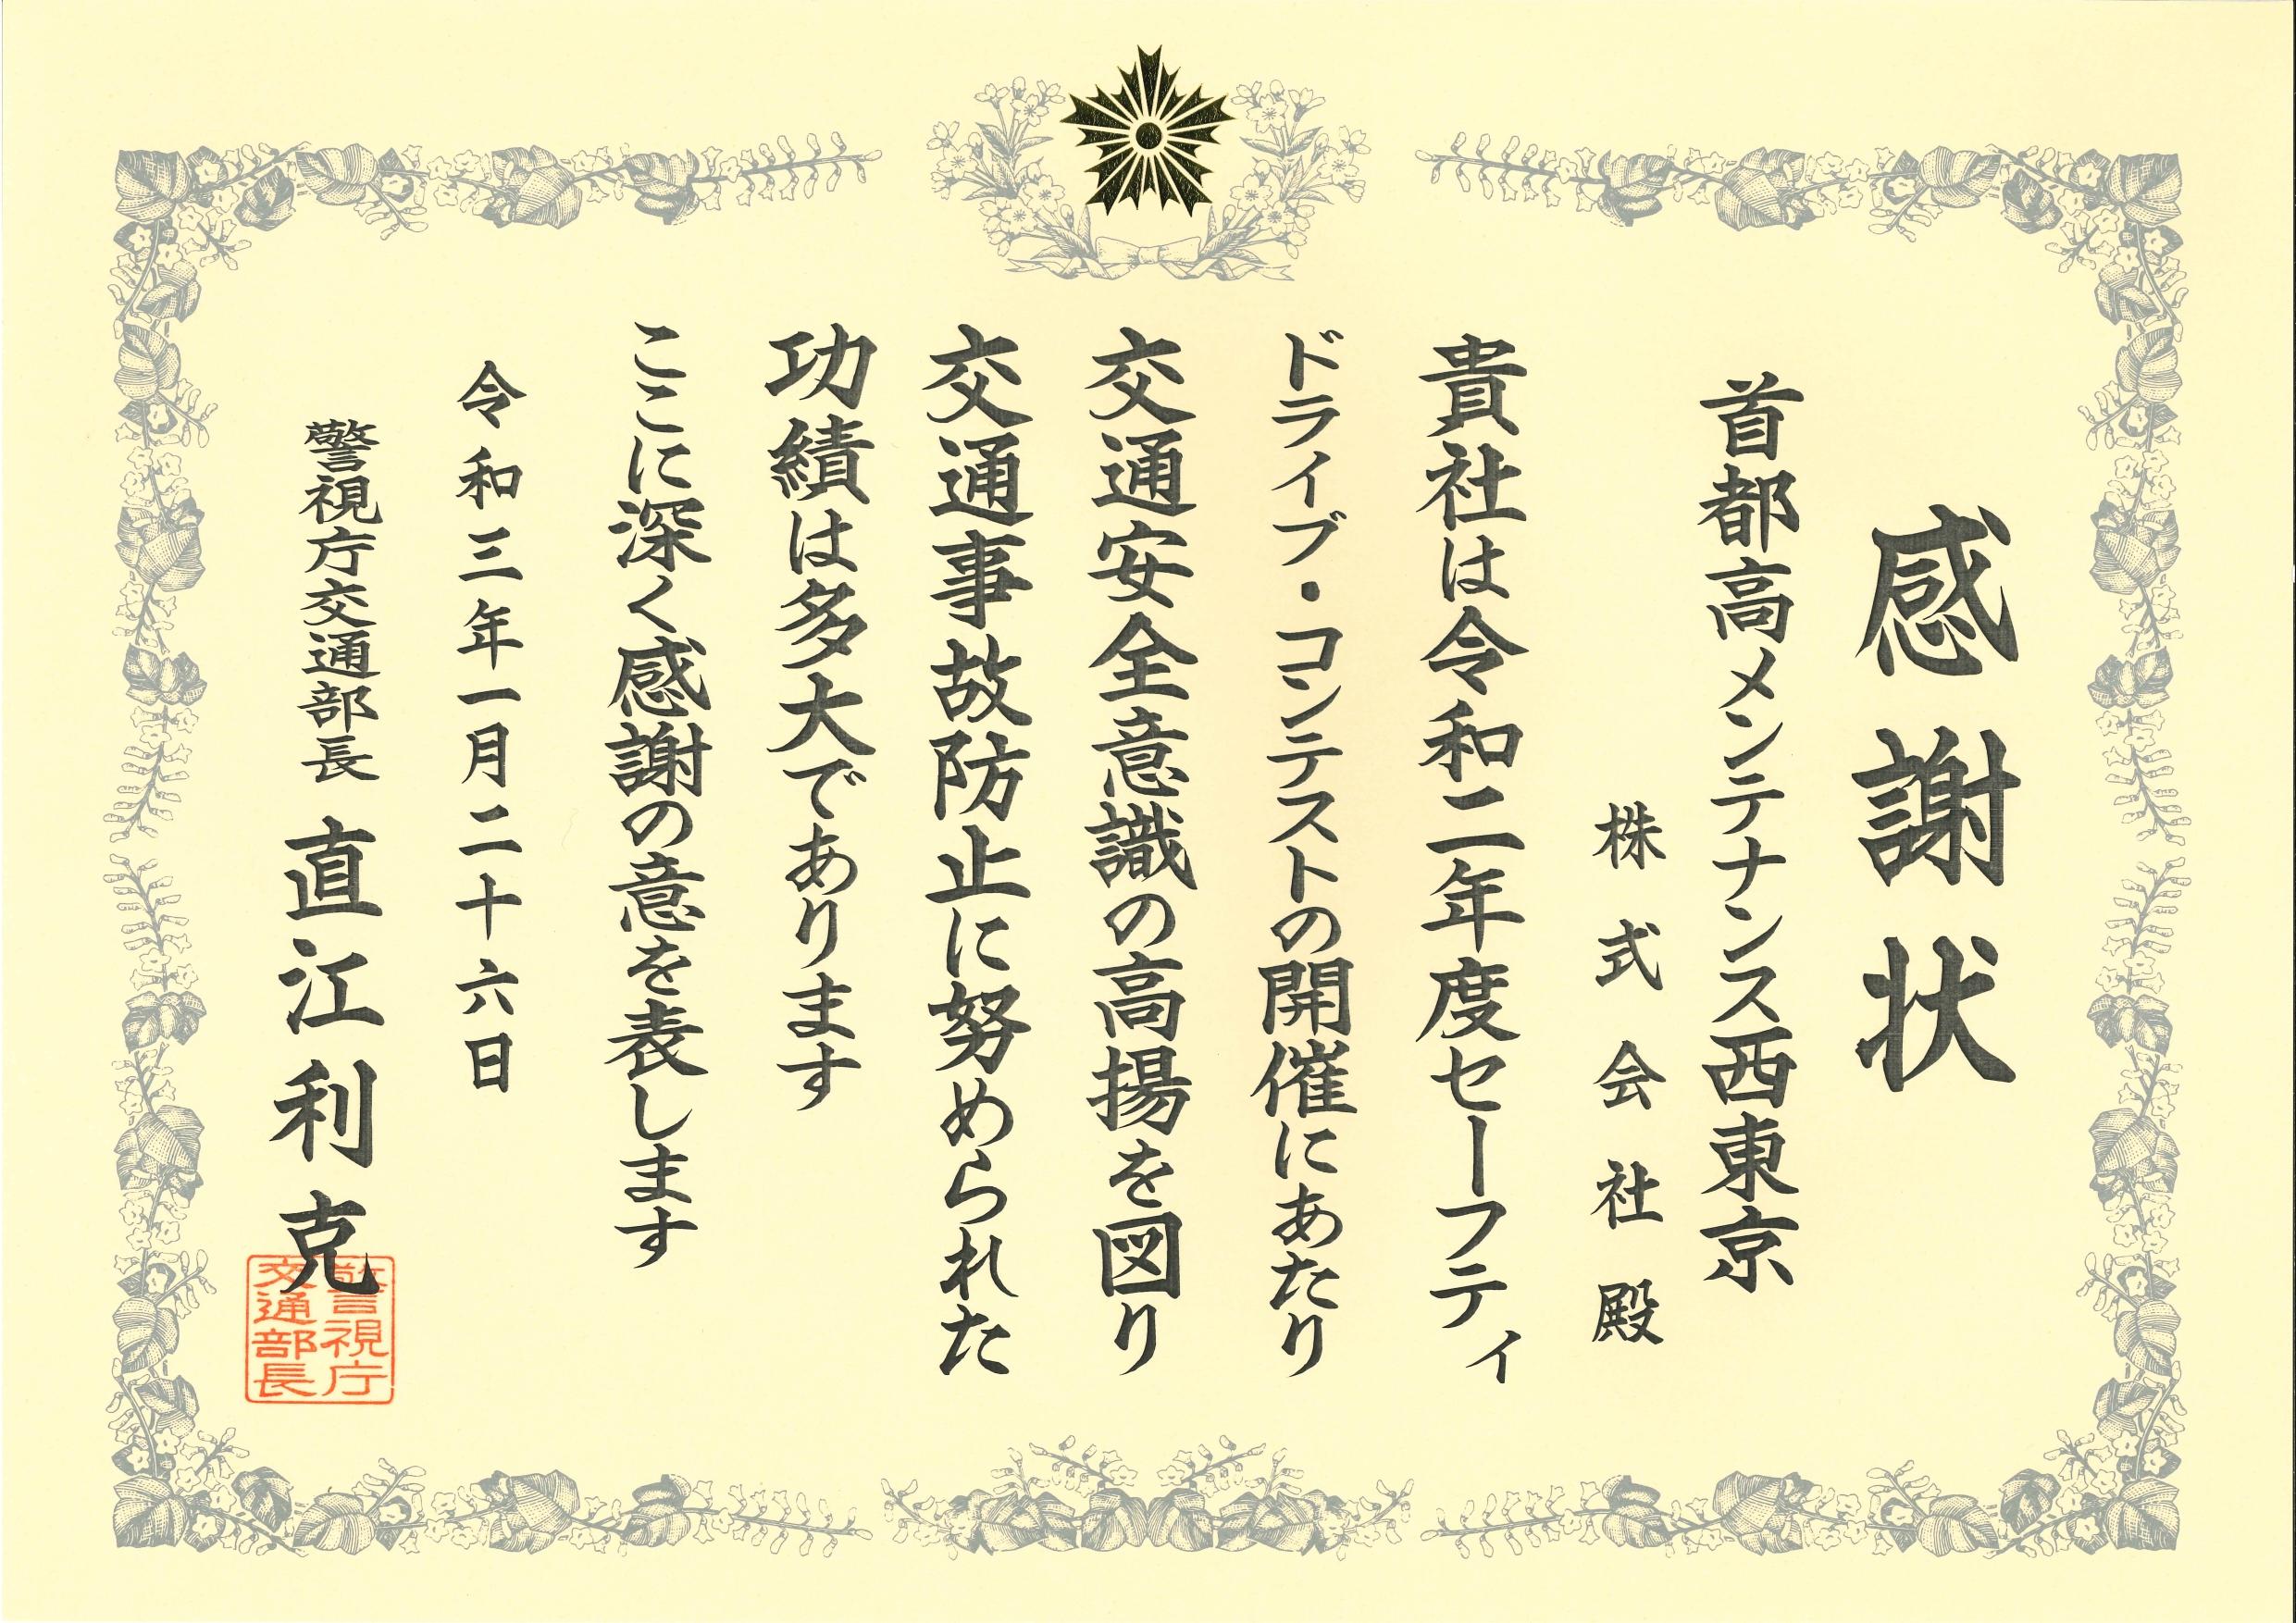 感謝状
首都高メンテナンス西東京
株式会社殿
貴社は令和二年度セーフティ
ドライブ・コンテストの開催にあたり
交通安全意識の高揚を図り
交通事故防止に努められた
功績は多大であります
ここに深く感謝の意を表します
令和三年一月二十六日
警視庁交通部長 直江利克
警視庁
交通部長